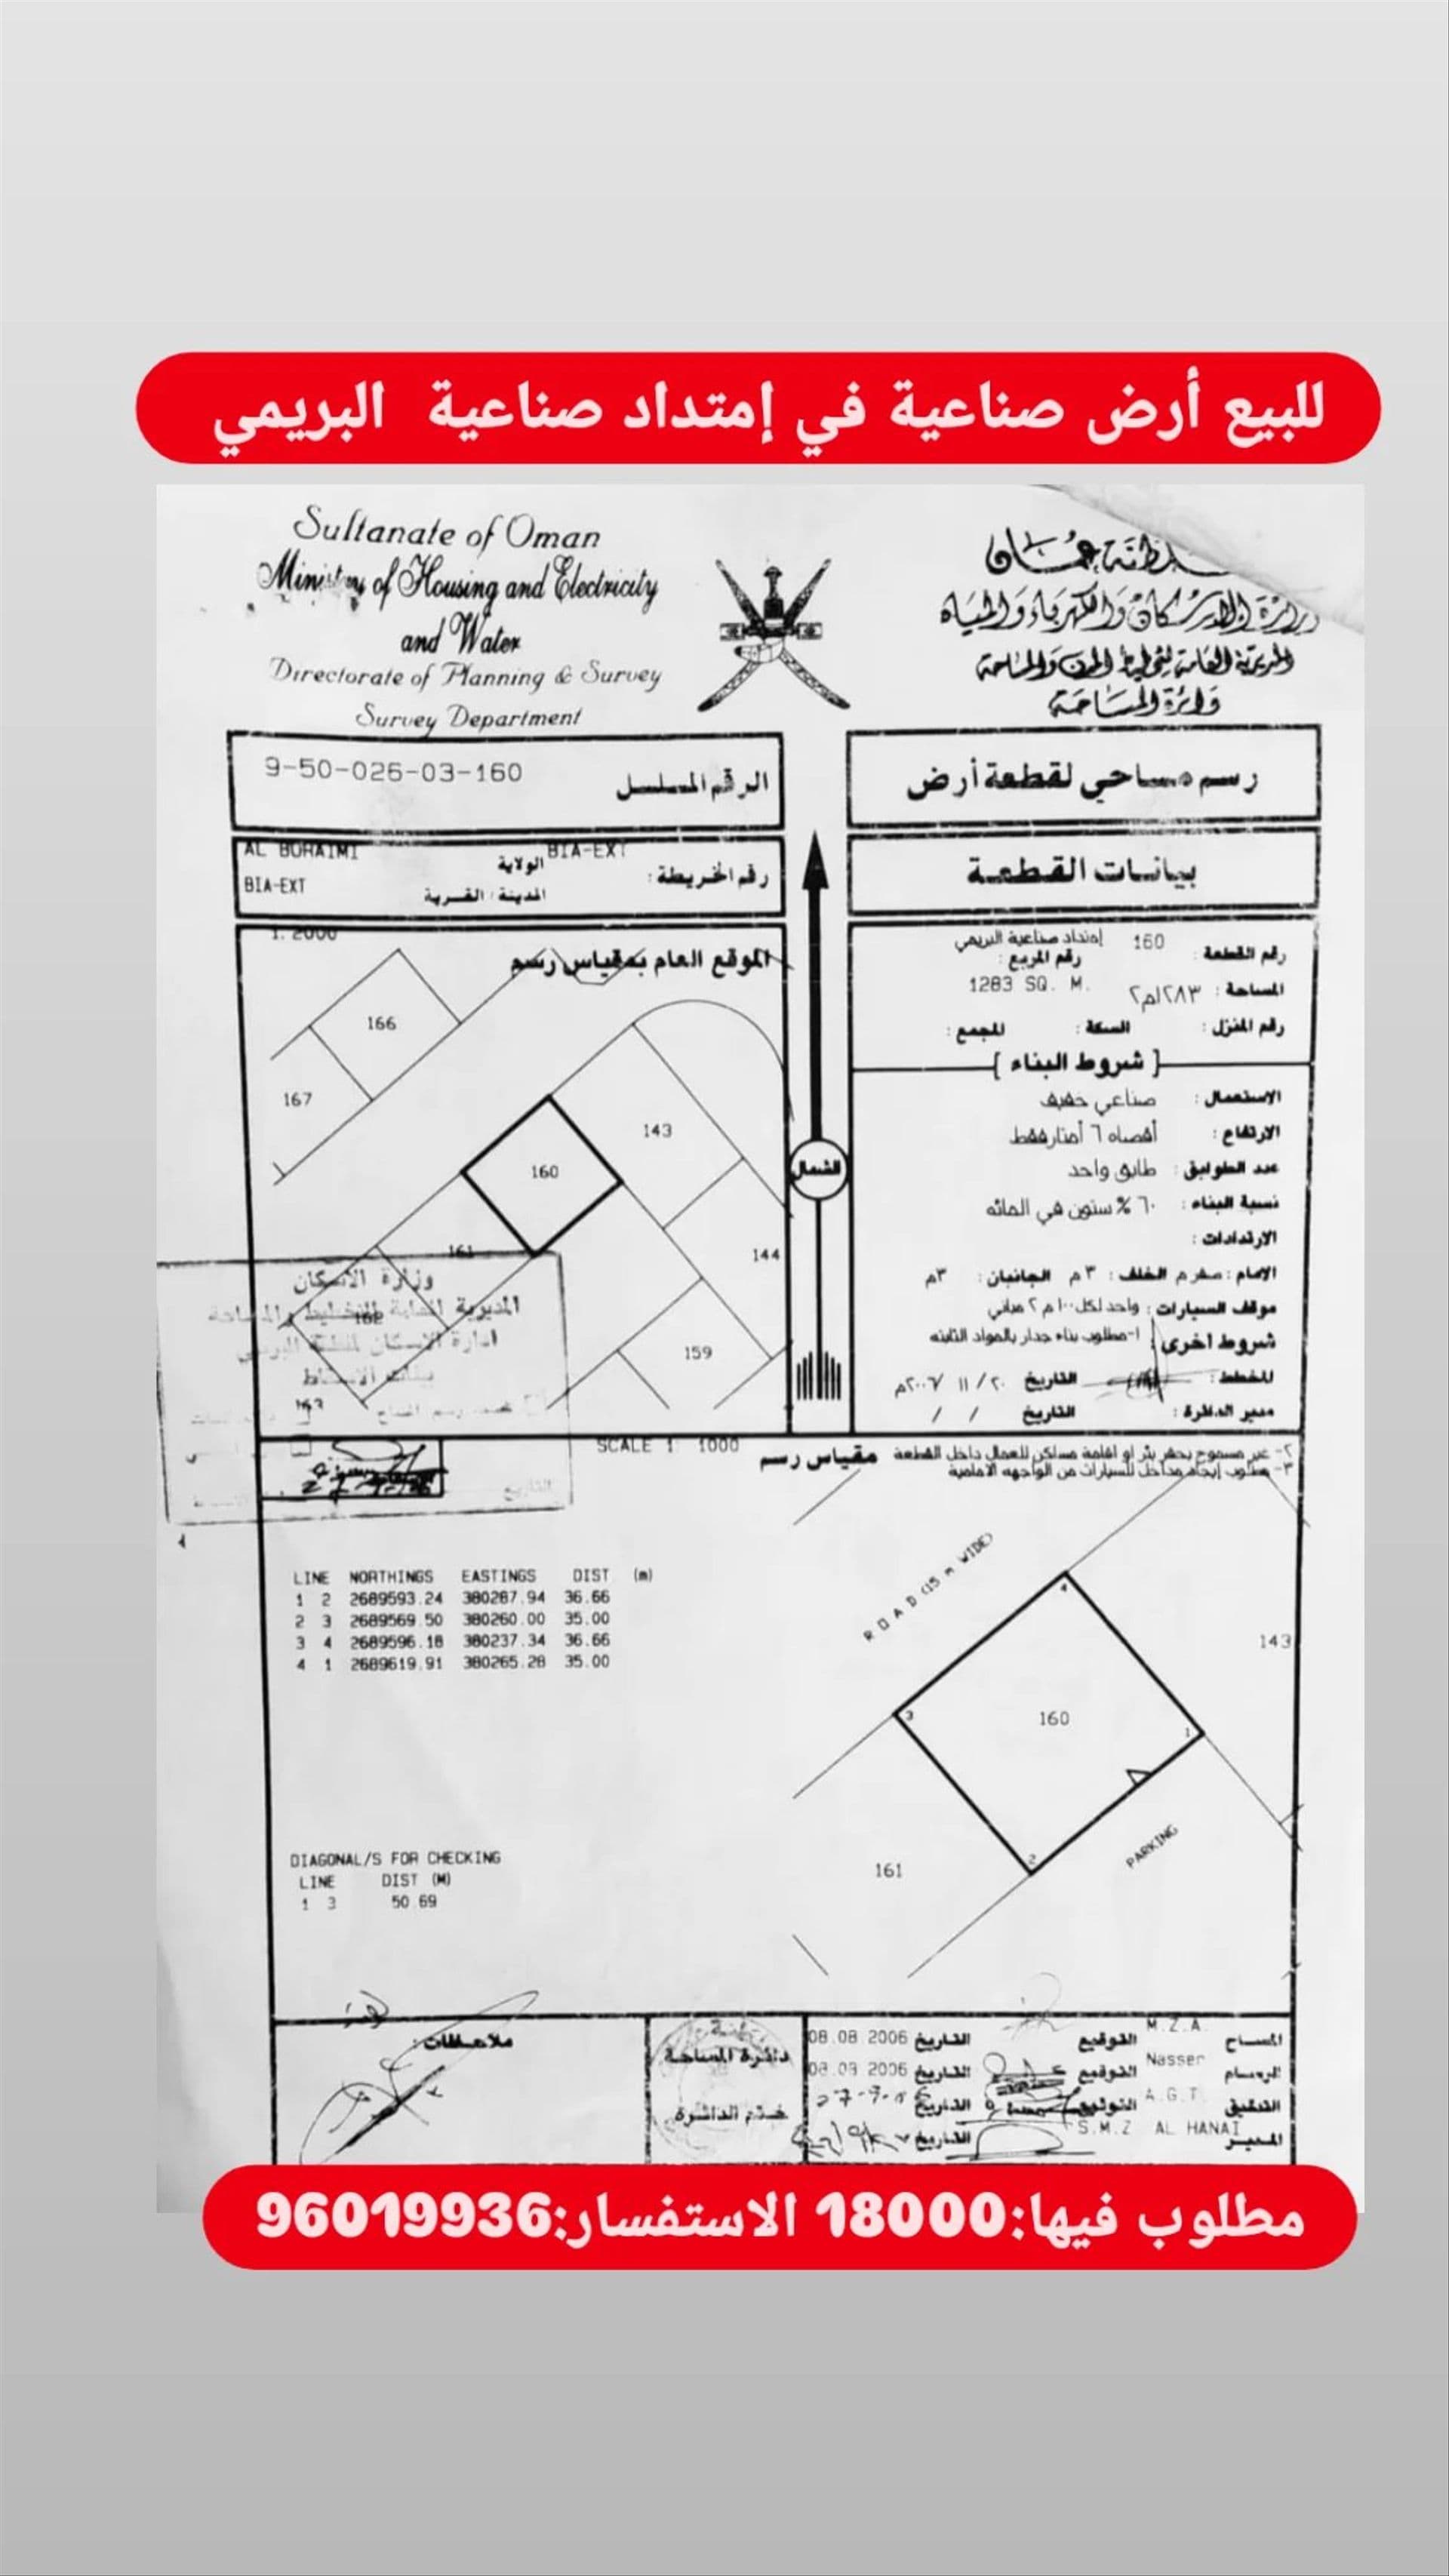 للبيع أرض صناعية في إمتداد صناعية البريمي
Sultanate of Oman
Ministry of Housing and Electricity
and Water
Directorate of Planning & Survey
Survey Department
سلطنة عمان
وزارة الإسكان والكهرباء والمياه
المديرية العامة لتخطيط المدن والمساحة
دائرة المساحة
رسم مساحي لقطعة أرض
الرقم المسلسل 9-50-026-03-160
بيانات القطعة
رقم الخريطة: BIA-EXT
الولاية AL BURAIMI
المدينة / القرية BIA-EXT
الموقع العام بمقياس رسم 1:2000
166
167
143
160
161
144
162
159
163
الشمال
رقم القطعة: 160 إمتداد صناعية البريمي
رقم المربع:
المساحة: ١٢٨٣م٢ 1283 SQ. M.
رقم المنزل: السكة: المجمع:
[ شروط البناء ]
الاستعمال: صناعي خفيف
الارتفاع: أقصاه ٦ أمتار فقط
عدد الطوابق: طابق واحد
نسبة البناء: ٦٠% ستون في المائه
الارتدادات:
الامام: صفر م الخلف: ٣م الجانبان: ٣م
موقف السيارات: واحد لكل ١٠٠م٢ مباني
شروط اخرى: ١-مطلوب بناء جدار بالمواد الثابته
المخطط: التاريخ ٢٠/ ١١ /٢٠٠٦م
مدير الدائرة: التاريخ / /
٢- غير مسموح بحفر بئر او اقامة مساكن للعمال داخل القطعة
٣- مطلوب إيجاد مداخل للسيارات من الواجهه الامامية
وزارة الاسكان
المديرية العامة للتخطيط والمساحة
ادارة الاسكان لمنطقة البريمي
التاريخ
مقياس رسم SCALE 1: 1000
LINE NORTHINGS EASTINGS DIST (m)
1 2 2689593.24 380287.94 36.66
2 3 2689569.50 380260.00 35.00
3 4 2689596.18 380237.34 36.66
4 1 2689619.91 380265.28 35.00
ROAD (15 m WIDE)
4
143
3
160
1
2
PARKING
161
DIAGONAL/S FOR CHECKING
LINE DIST (M)
1 3 50.69
المساح M.Z.A. التوقيع التاريخ 08.08.2006
الرسام Nasser التوقيع التاريخ 08.08.2006
التدقيق A.G.T. التوقيع التاريخ
المدير S.M.Z AL HANAI التاريخ
دائرة المساحة
ختم الدائرة
ملاحظات:
مطلوب فيها:18000 الاستفسار:96019936